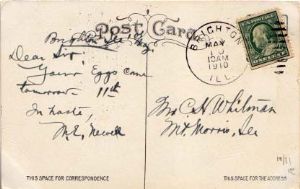 Post Card
Brighton Ill. May
Dear Sir,
Your Eggs came
tomorrow 11th
In haste,
M.E. Newell
BRIGHTON
MAY
10
10AM
1910
ILL.
Mr C. H. Whitman
Mt. Morris, Ill
THIS SPACE FOR CORRESPONDENCE
THIS SPACE FOR THE ADDRESS